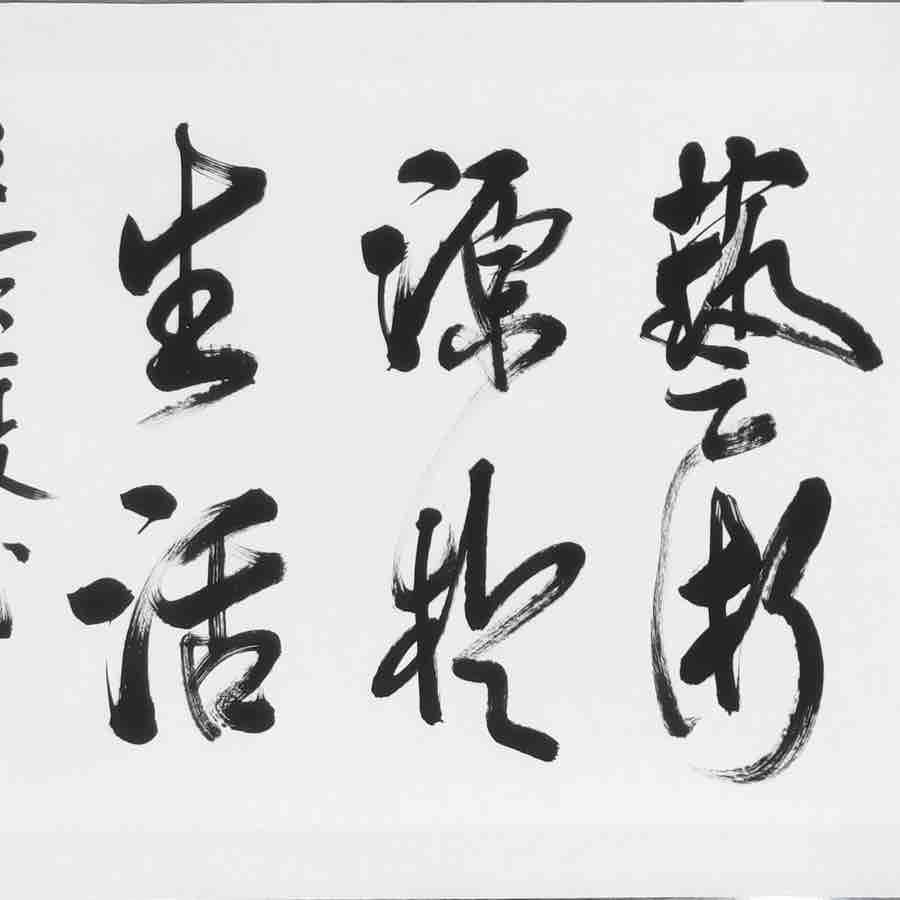 藝術
源於
生活